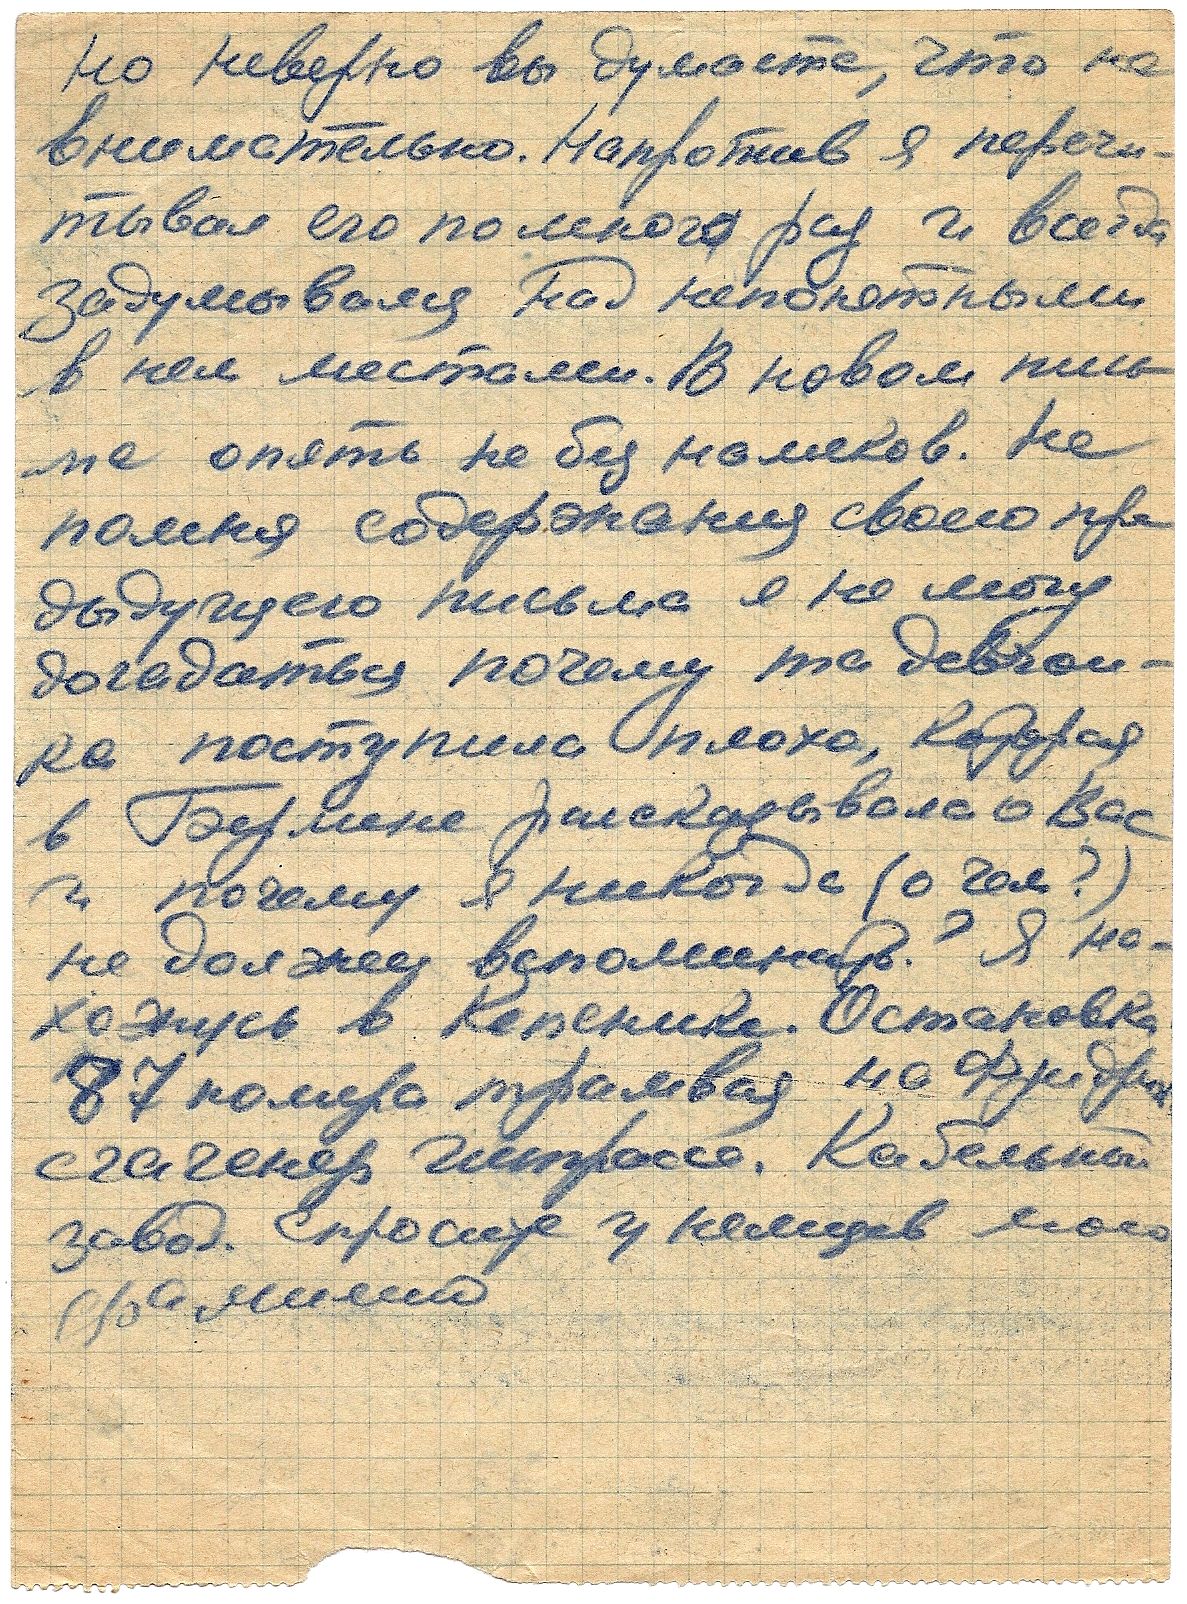 но неверно вы думаете, что не
внимательно. Напротив я перечи-
тывал его помногу раз и всегда
задумывался над непонятными
в нем местами. В новом пись
ме опять не без намеков. Не
помня содержания своего пре
дыдущего письма я не могу
догадаться почему та девчон-
ка поступила плохо, которая
в Берлине рассказывала о Вас
и почему я никогда (о чем?)
не должен вспоминать? Я на-
хожусь в Кепенике. Остановка
87 номера трамвая на Фридрих
сгагенер штрассе. Кабельный
завод. Спросите у немцев мою
фамилию